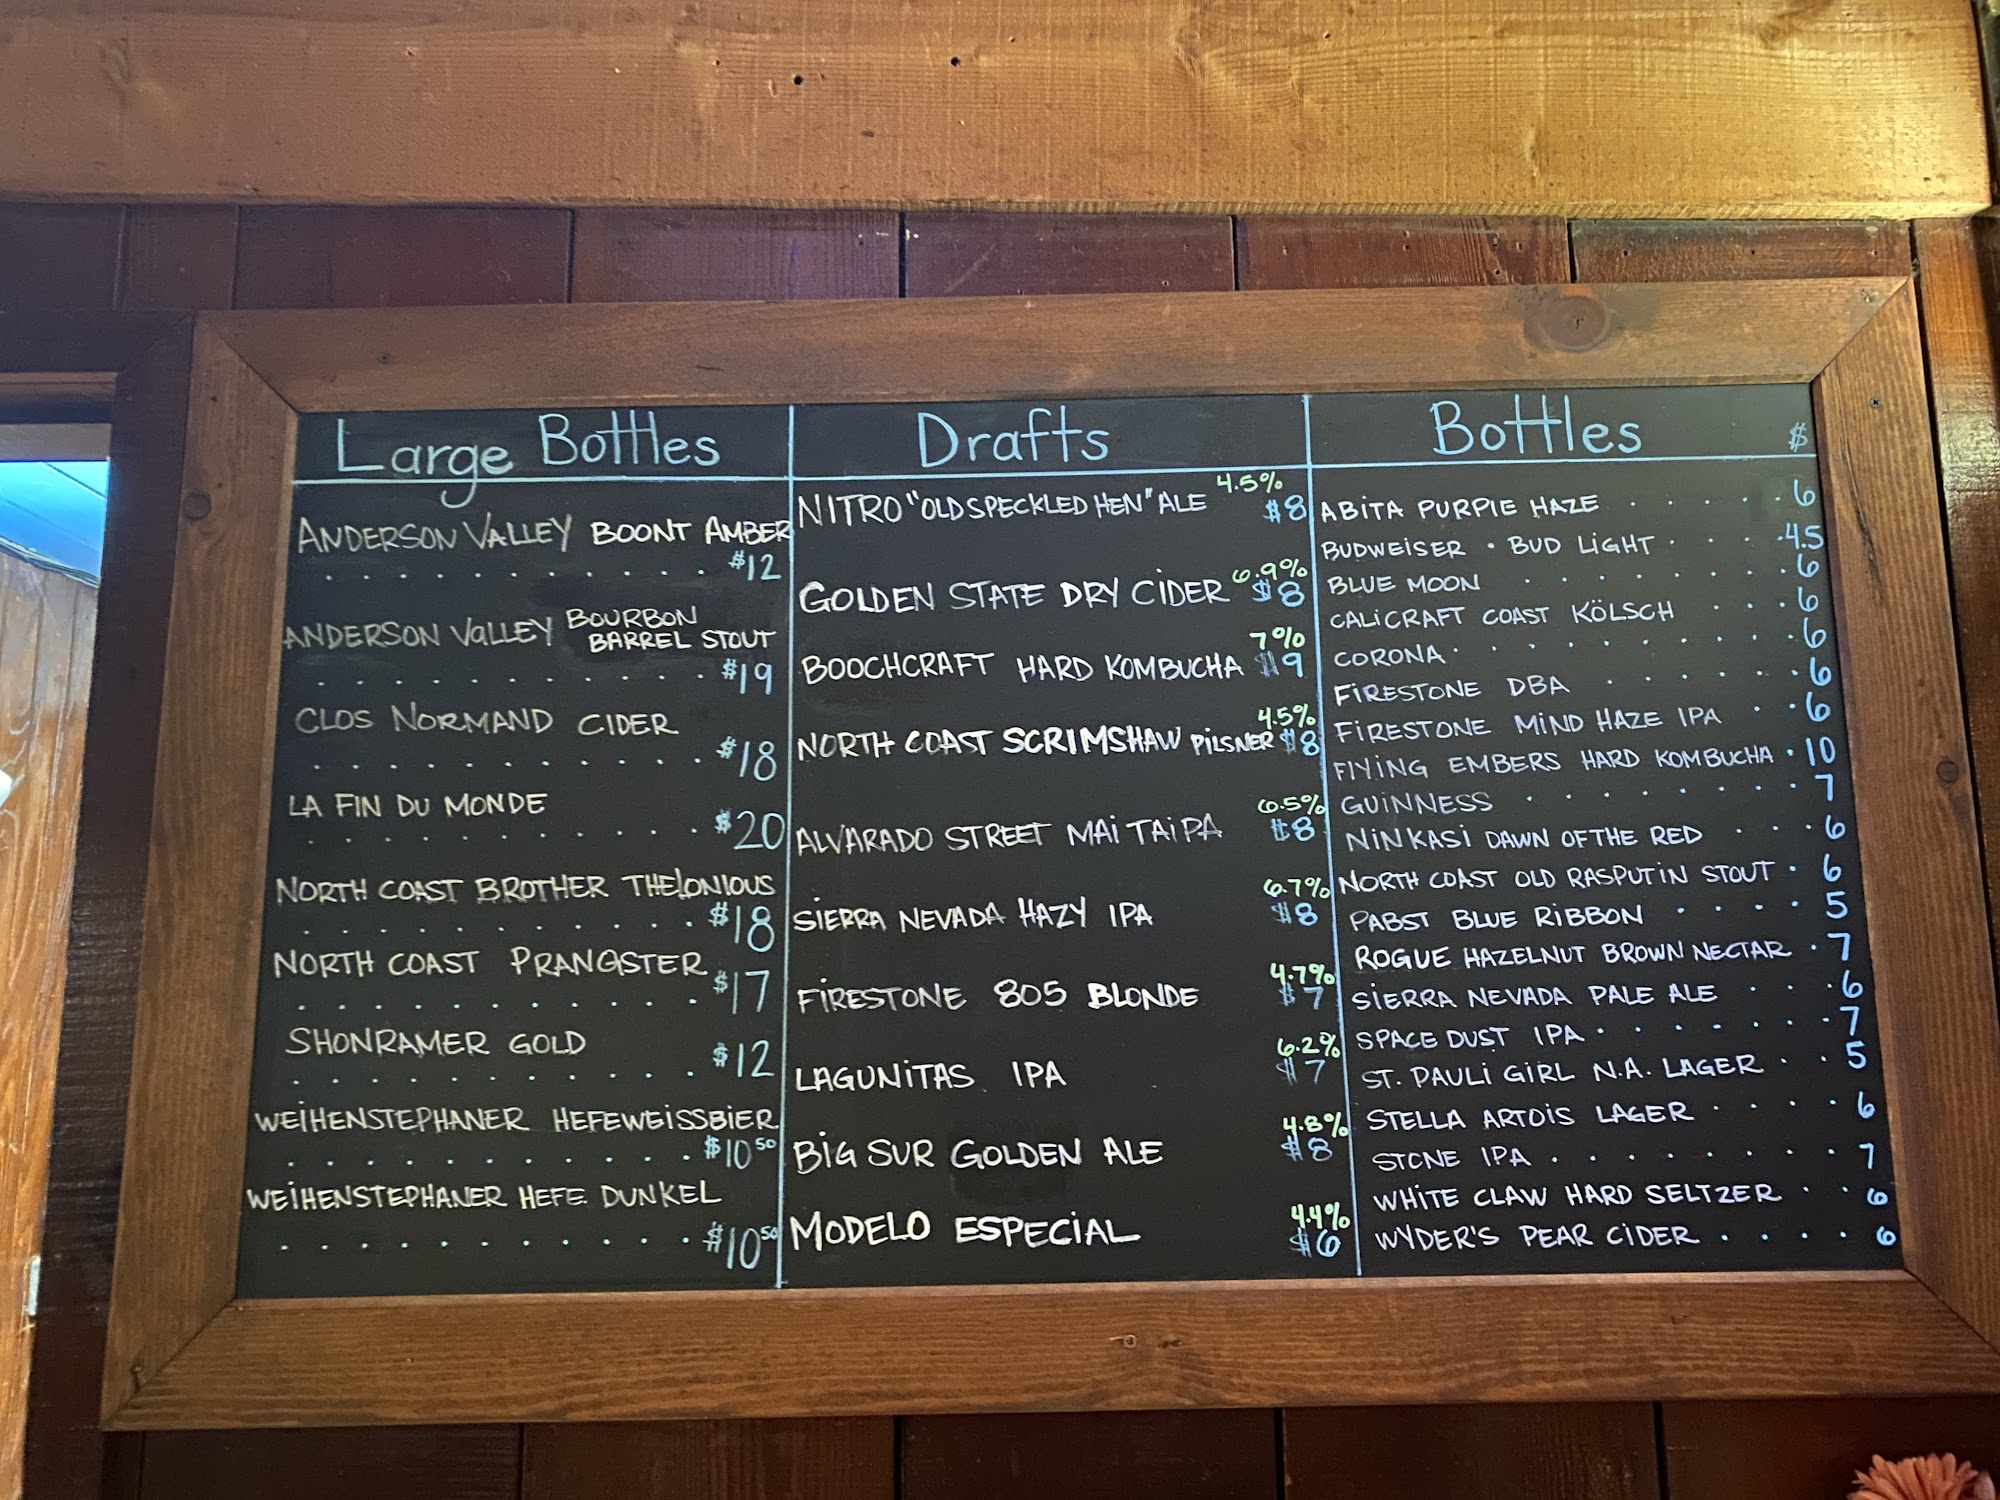 Large Bottles
ANDERSON VALLEY BOONT AMBER
. . . . . . . . . . . $12
ANDERSON VALLEY BOURBON
BARREL STOUT
. . . . . . . . . . . $19
CLOS NORMAND CIDER
. . . . . . . . . . . $18
LA FIN DU MONDE
. . . . . . . . . . . $20
NORTH COAST BROTHER THELONIOUS
. . . . . . . . . . . $18
NORTH COAST PRANQSTER
. . . . . . . . . . . $17
SHONRAMER GOLD
. . . . . . . . . . . $12
WEIHENSTEPHANER HEFEWEISSBIER
. . . . . . . . . . . $10 50
WEIHENSTEPHANER HEFE DUNKEL
. . . . . . . . . . . $10 50
Drafts
4.5%
NITRO "OLD SPECKLED HEN" ALE $8
6.9%
GOLDEN STATE DRY CIDER $8
7%
BOOCHCRAFT HARD KOMBUCHA $9
4.5%
NORTH COAST SCRIMSHAW PILSNER $8
6.5%
ALVARADO STREET MAI TAI PA $8
6.7%
SIERRA NEVADA HAZY IPA $8
4.7%
FIRESTONE 805 BLONDE $7
6.2%
LAGUNITAS IPA $7
4.8%
BIG SUR GOLDEN ALE $8
4.4%
MODELO ESPECIAL $6
Bottles $
ABITA PURPLE HAZE . . . . . 6
BUDWEISER • BUD LIGHT . . . . 4.5
BLUE MOON . . . . . . . . 6
CALICRAFT COAST KÖLSCH . . . 6
CORONA . . . . . . . . . 6
FIRESTONE DBA . . . . . . 6
FIRESTONE MIND HAZE IPA . . 6
FLYING EMBERS HARD KOMBUCHA . 10
GUINNESS . . . . . . . . 7
NINKASI DAWN OF THE RED . . . 6
NORTH COAST OLD RASPUTIN STOUT . 6
PABST BLUE RIBBON . . . . 5
ROGUE HAZELNUT BROWN NECTAR . 7
SIERRA NEVADA PALE ALE . . . 6
SPACE DUST IPA . . . . . . . 7
ST. PAULI GIRL N.A. LAGER . . 5
STELLA ARTOIS LAGER . . . . 6
STONE IPA . . . . . . . . 7
WHITE CLAW HARD SELTZER . . 6
WYDER'S PEAR CIDER . . . . 6